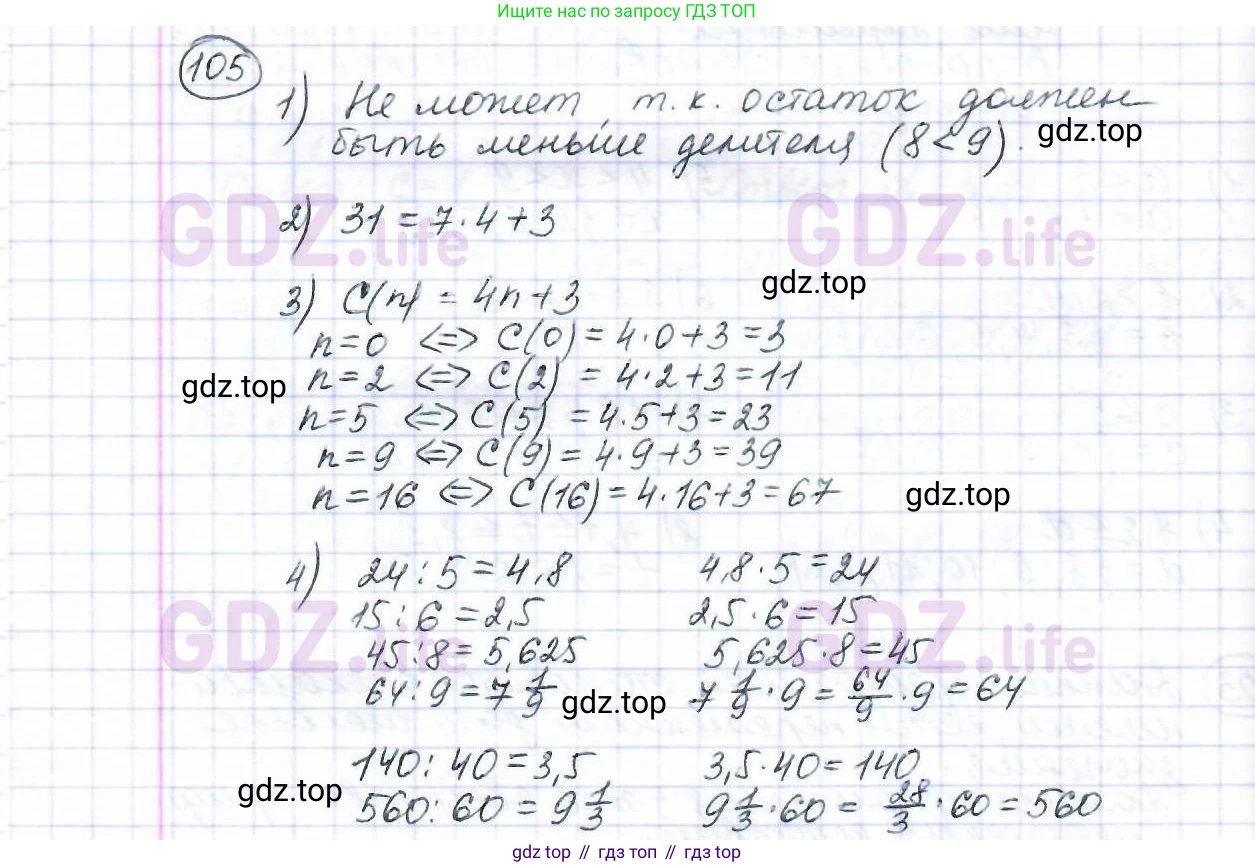 Ищите нас по запросу ГДЗ ТОП
105
1) Не может, т.к. остаток должен
быть меньше делителя (8<9).
gdz.top
2) 31 = 7·4+3
GDZ.life GDZ.life
gdz.top
3) C(n) = 4n+3
n=0 <=> C(0) = 4·0+3=3
gdz.top
n=2 <=> C(2) = 4·2+3=11
n=5 <=> C(5) = 4·5+3=23
n=9 <=> C(9) = 4·9+3=39
n=16 <=> C(16) = 4·16+3=67
gdz.top
4) 24:5=4,8 4,8·5=24
15:6=2,5 2,5·6=15
GDZ.life GDZ.life
45:8=5,625 5,625·8=45
64:9=7 1/9 7 1/9·9=64/9·9=64
gdz.top
140:40=3,5 3,5·40=140
gdz.top
560:60=9 1/3 9 1/3·60=28/3·60=560
gdz.top // гдз топ // гдз.top